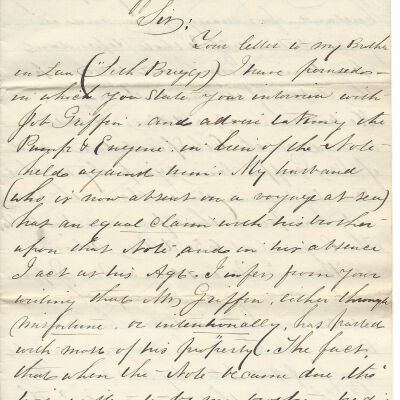 Sir;
Your letter to my Brother
in Law (Seth Briggs) I have perused –
in which you State your interview with
Job Griffin, and advise taking the
Pump & Engine in lieu of the Note
held against him. My husband
(who is now absent on a voyage at sea)
has an equal claim with his brother
upon that Note and in his absence
I act as his Agt. I infer from your
writing that Mr Griffin, either through
misfortune or intentionally, has parted
with most of his property (The fact,
that when the Note became due, this